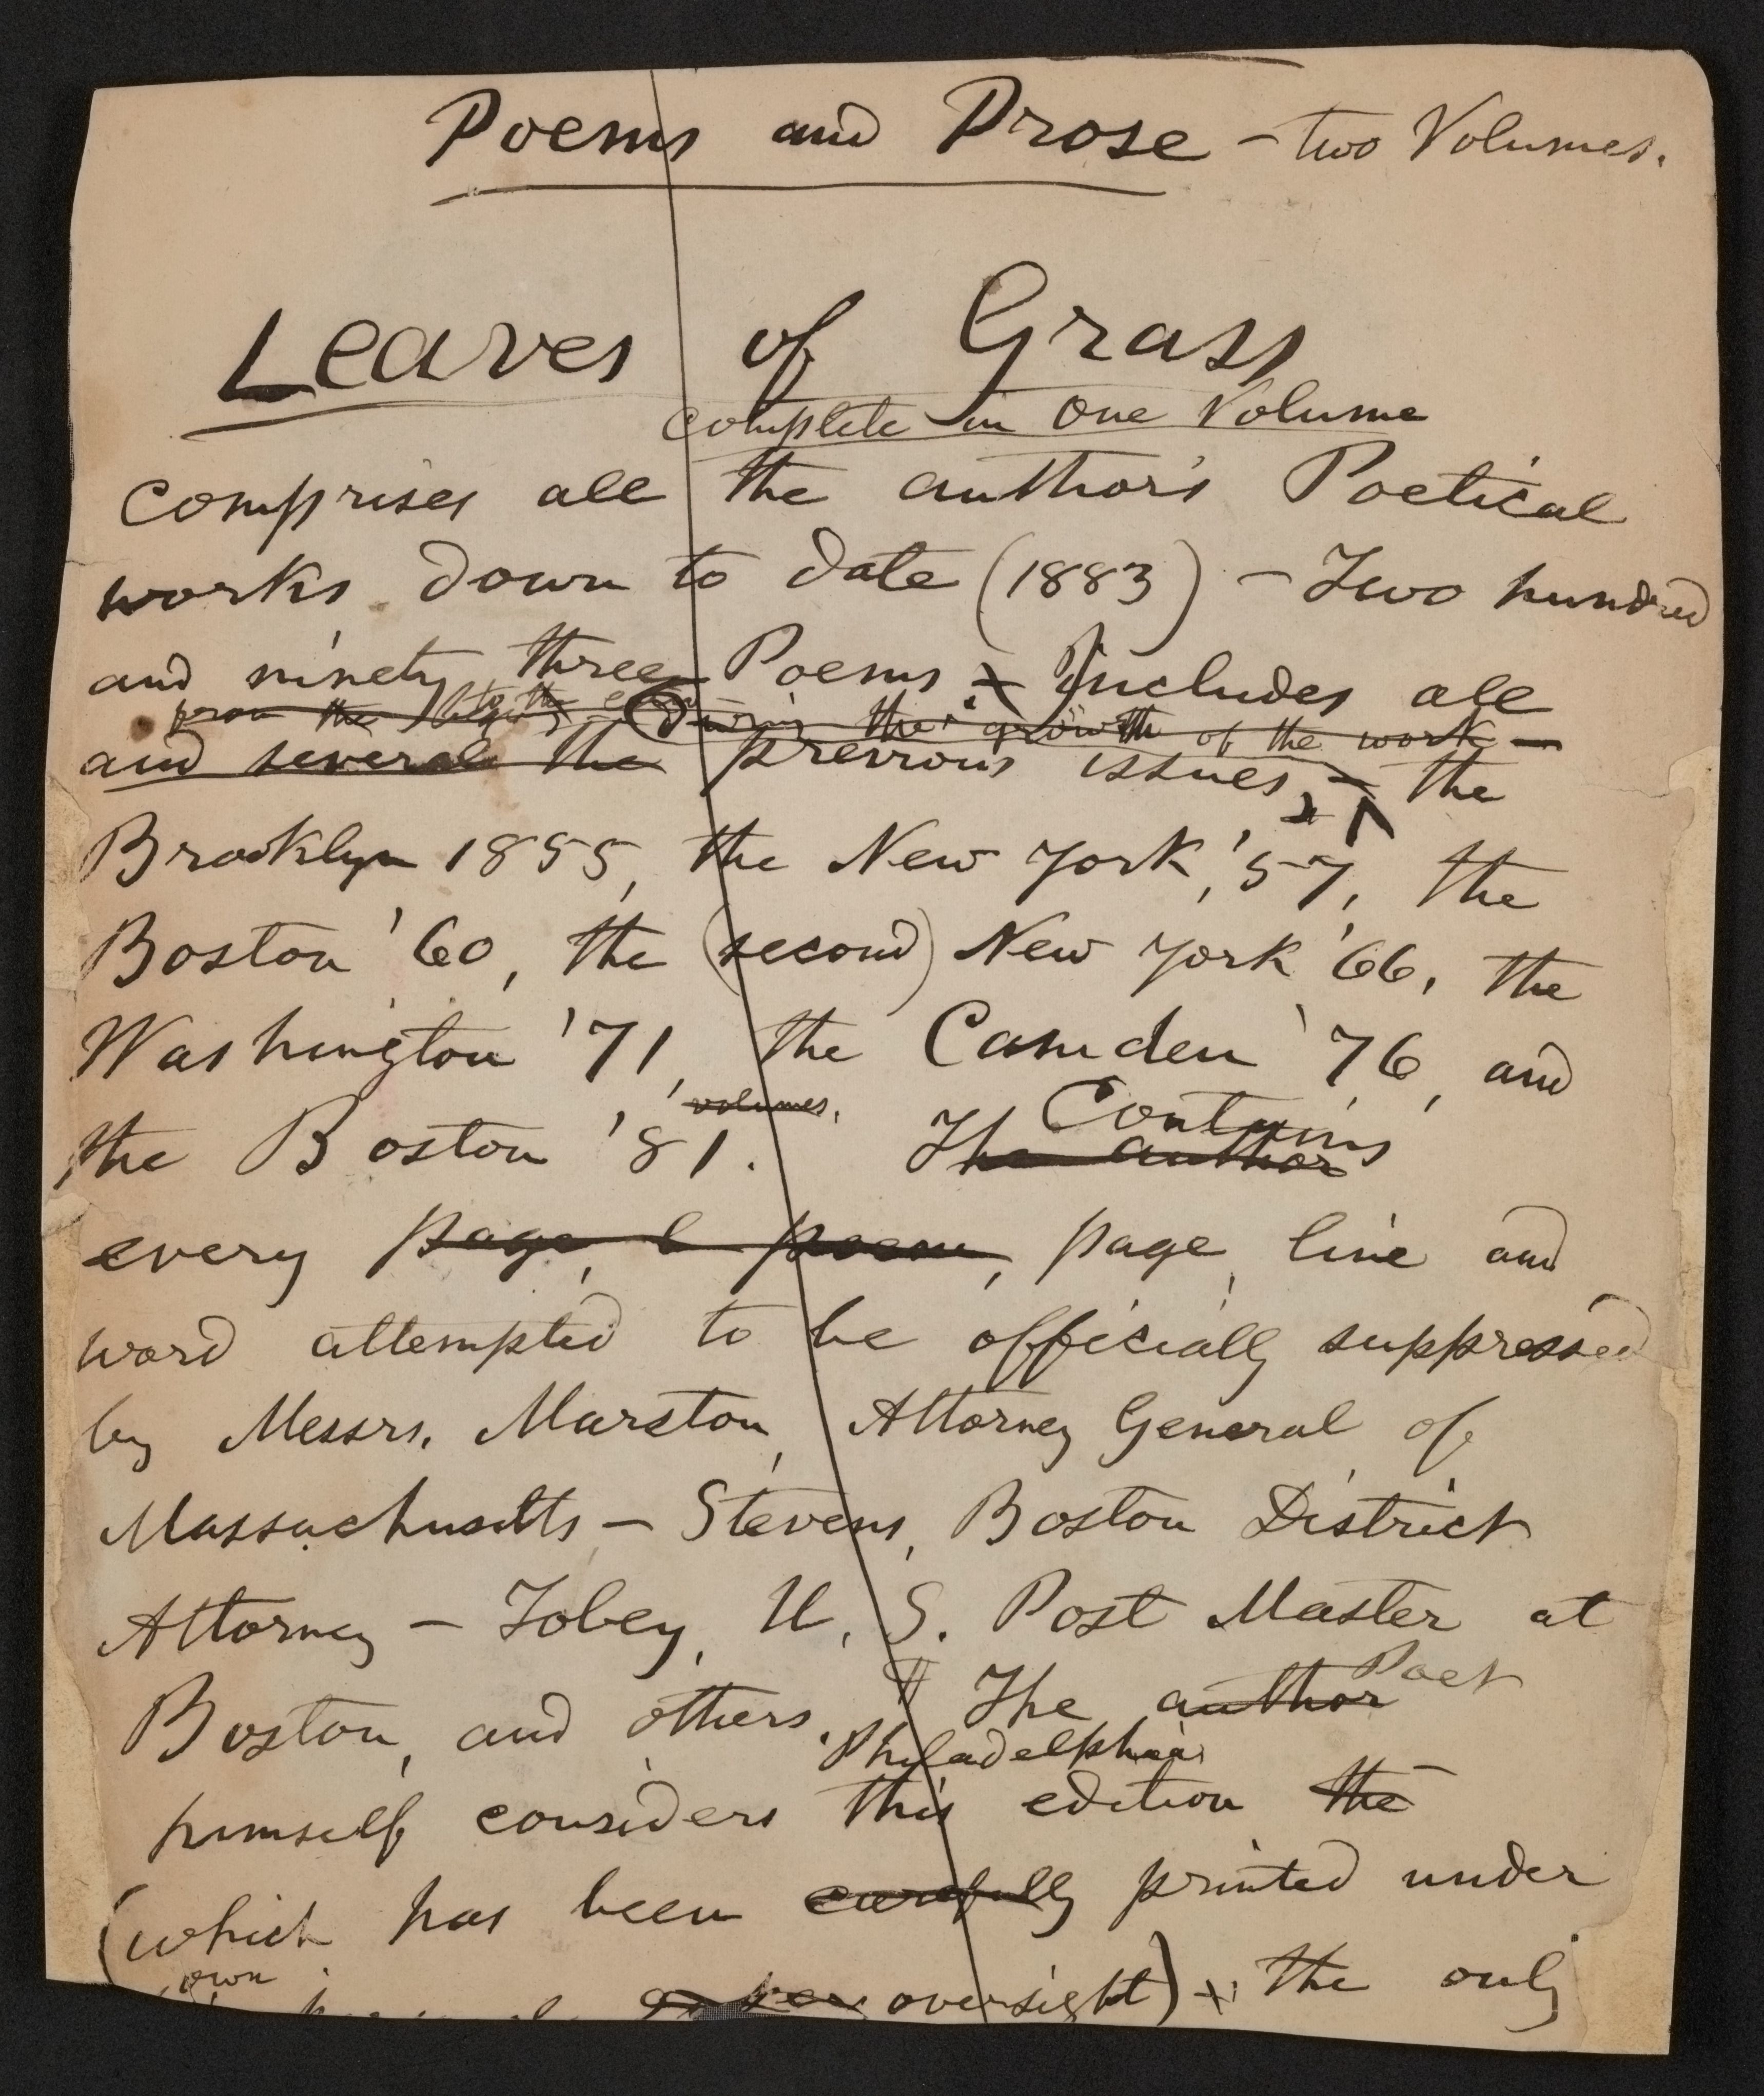 Poems and Prose – two Volumes.
Leaves of Grass
complete in One Volume
comprises all the author's Poetical
works down to date (1883) – Two hundred
and ninety three Poems – Includes all
from the during the growth of the work –
and several the previous issues, – the
Brooklyn 1855, the New York, '57, the
Boston '60, the (second) New York '66, the
Washington '71, the Camden '76, and
volumes.
the Boston '81. The author
Contains
every page, l poem, page, line and
word attempted to be officially suppressed
by Messrs. Marston, Attorney General of
Massachusetts – Stevens, Boston District
Attorney – Tobey, U. S. Post Master at
Boston, and others. ¶ The author Poet
Philadelphia
himself considers this edition the
(which has been carefully printed under
own
oversight) the only